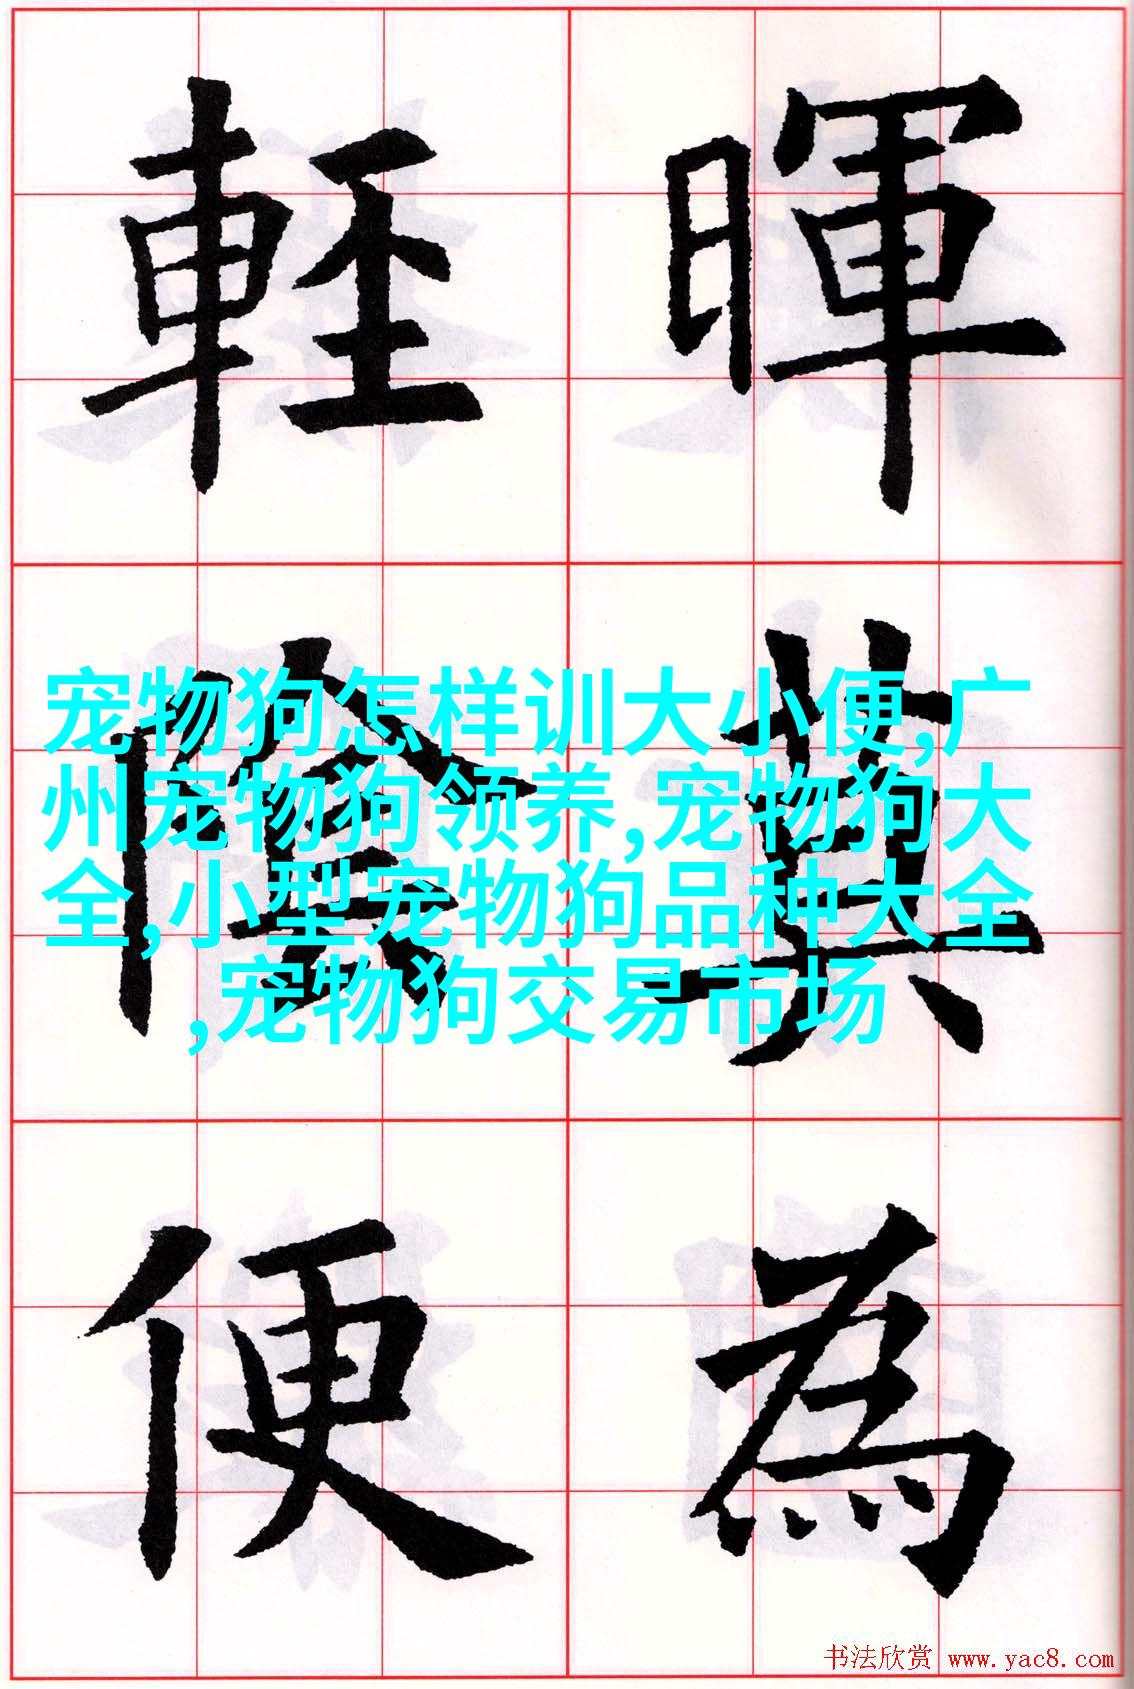 輕暉
陰蓂
便為
宠物狗怎样训大小便,广
州宠物狗领养,宠物狗大
全,小型宠物狗品种大全
,宠物狗交易市场
书法欣赏 www.yac8.com